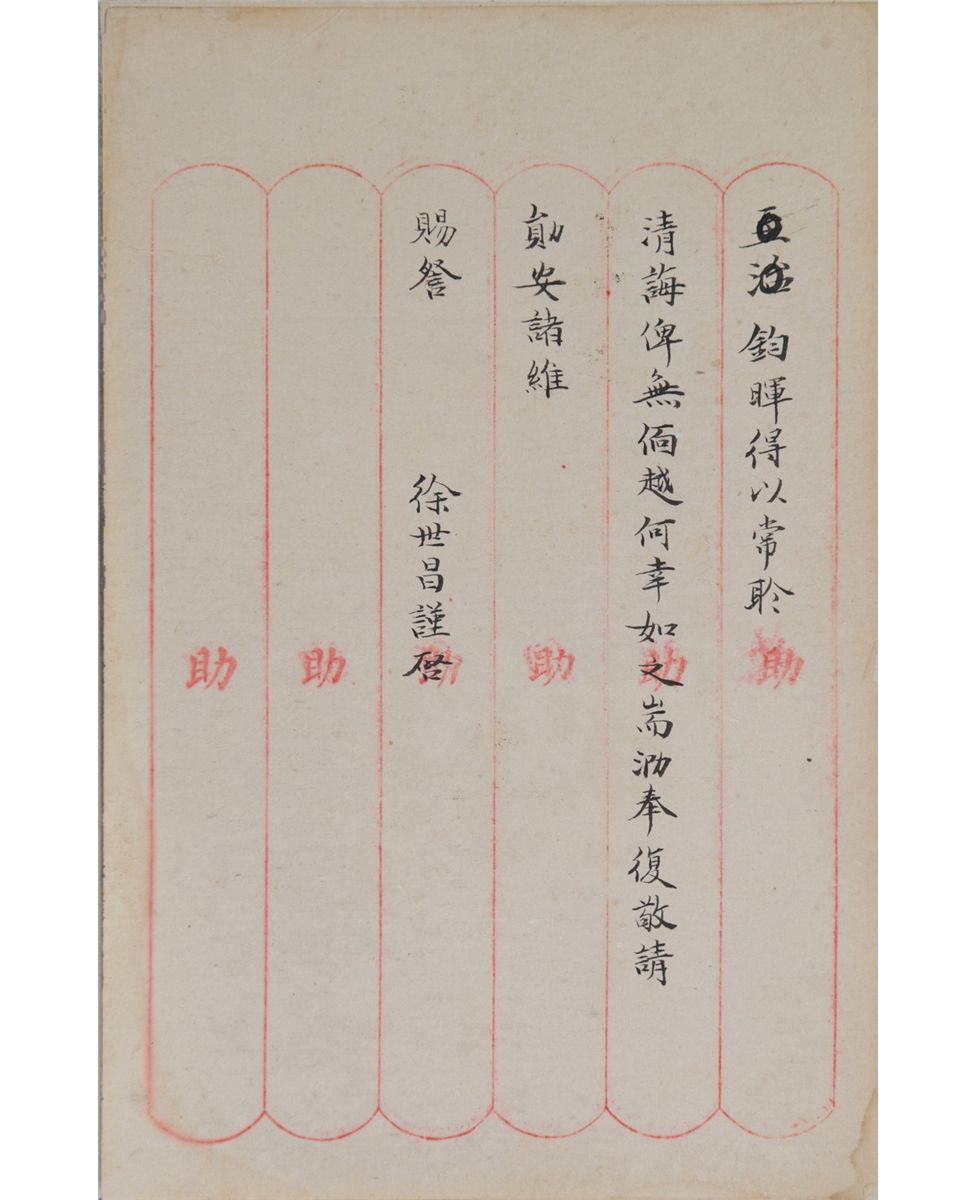 鈞暉得以常聆
清誨俾無偭越何幸如之耑泐奉復敬請
勛安諸維
賜詧 徐世昌謹启
助 助 助 助 助 助